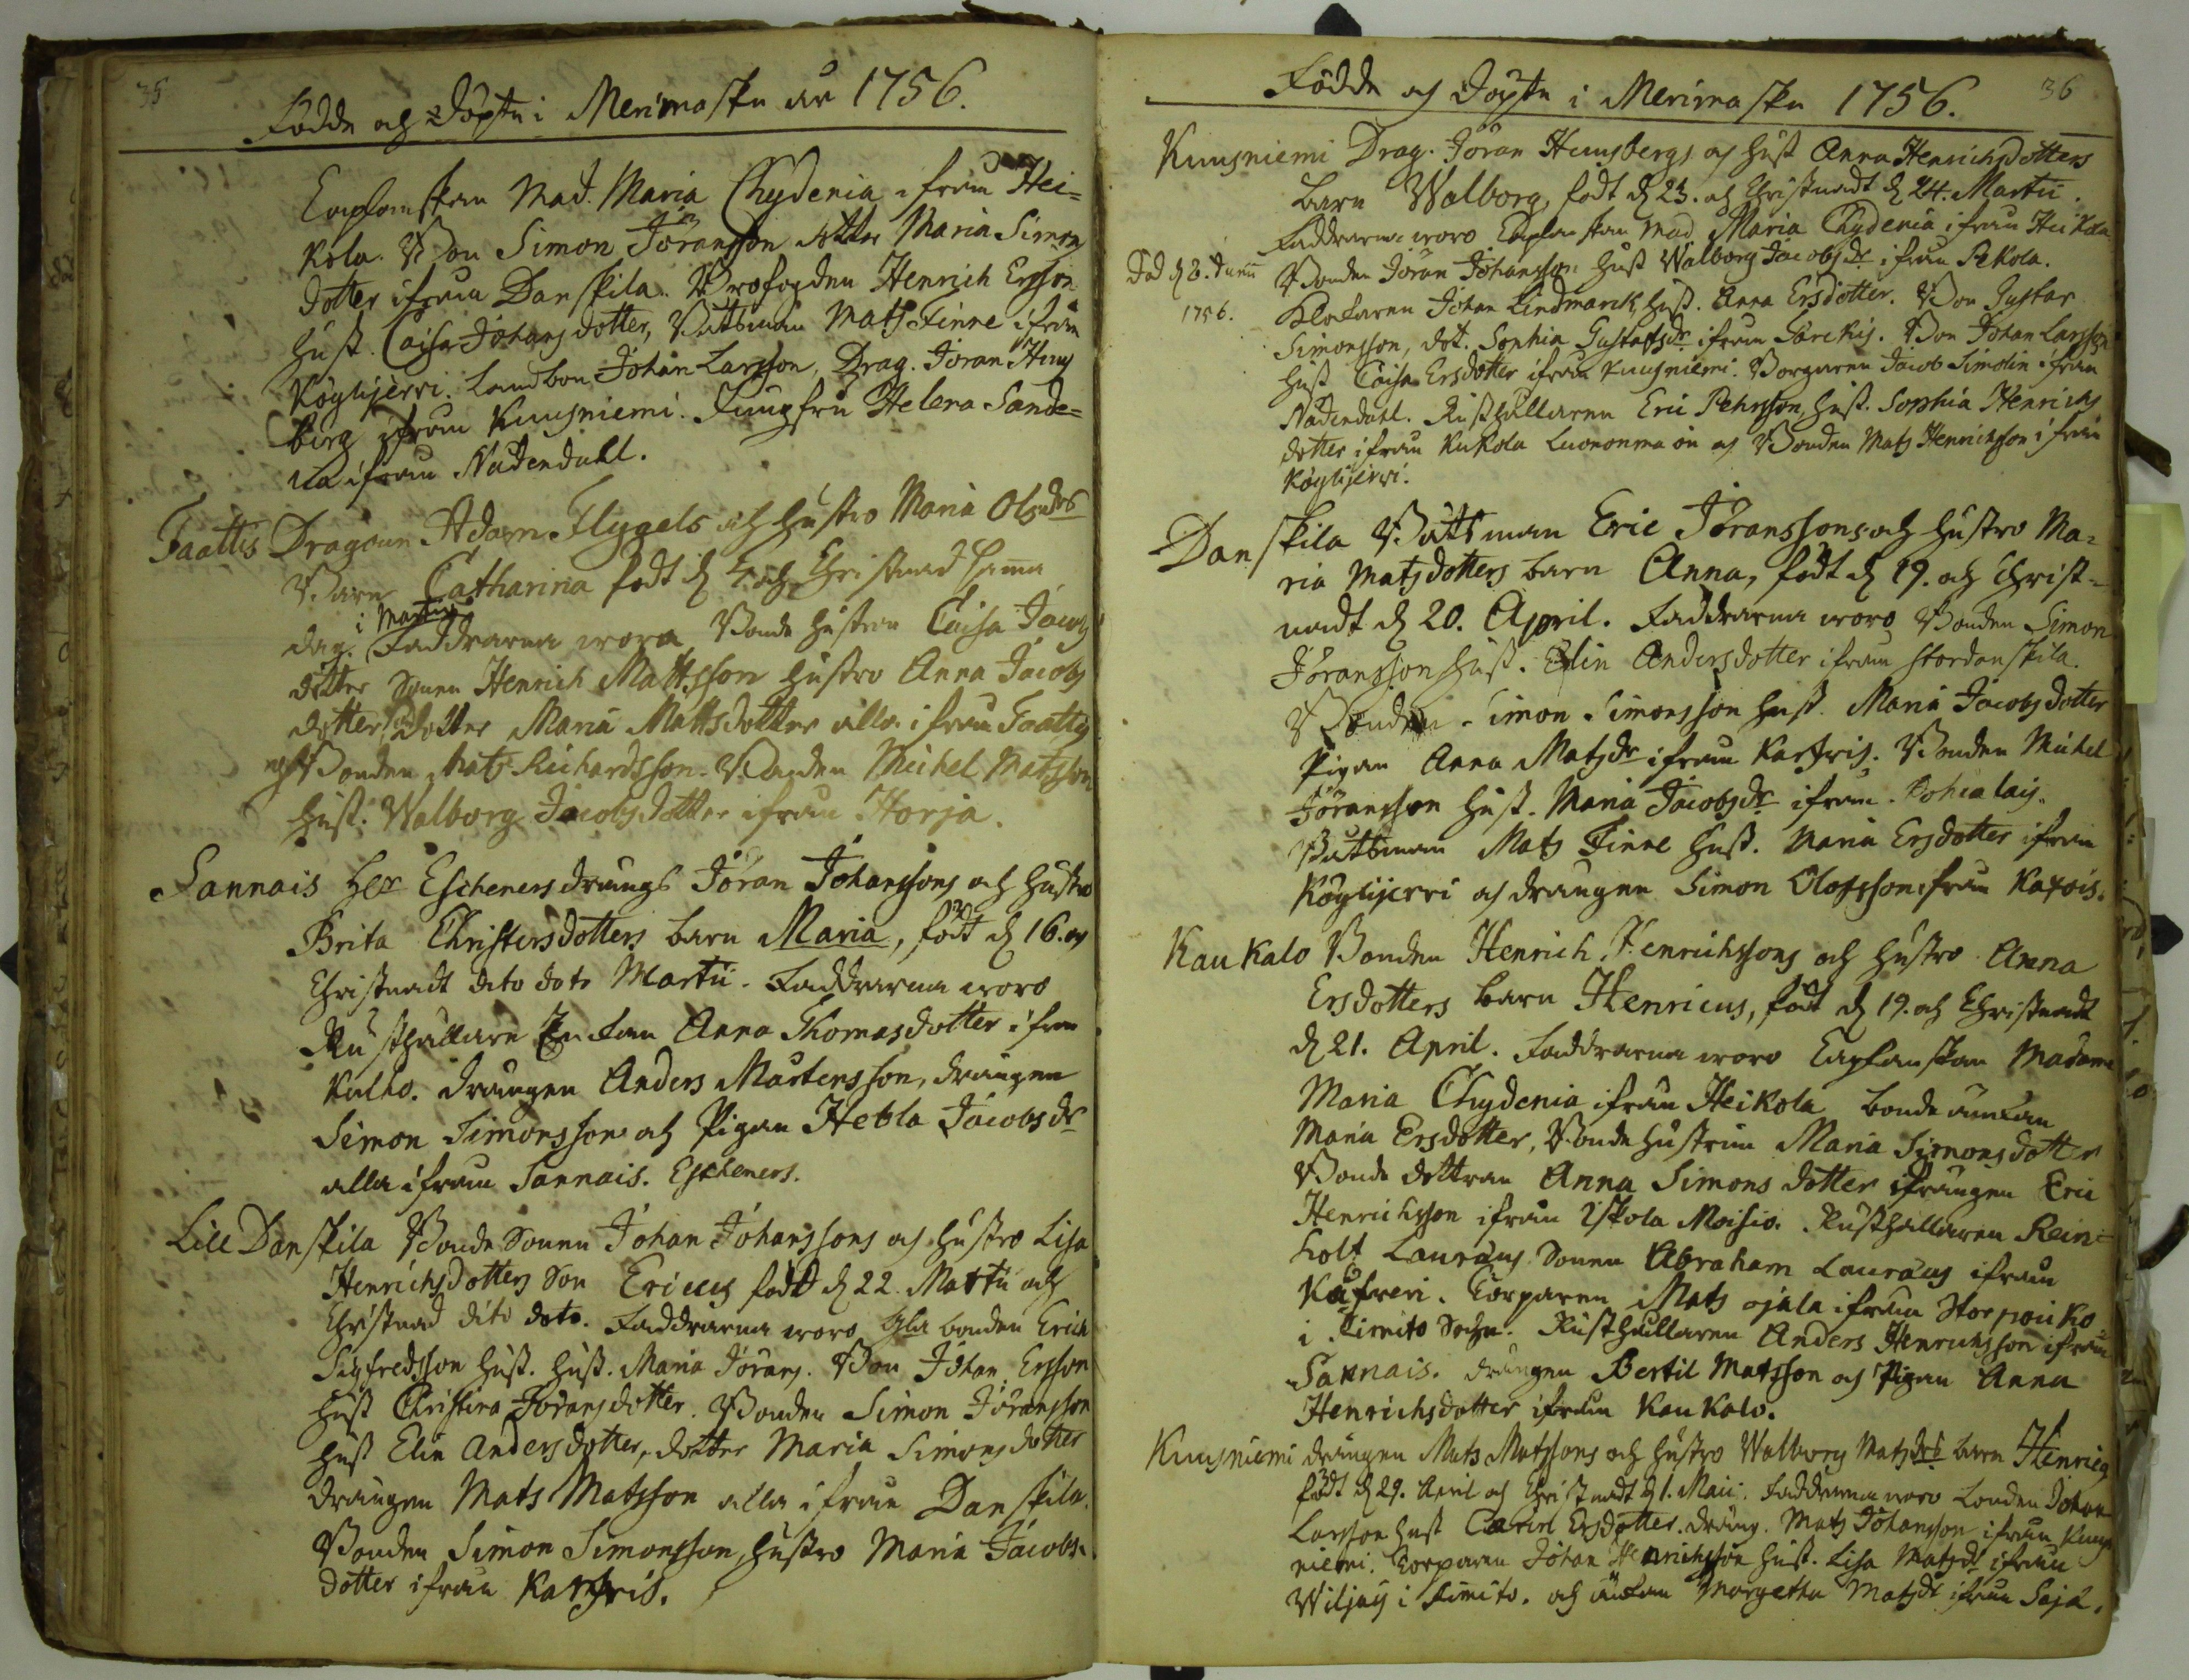 35
Födde och döpte i Merimasku år 1756.
Caplanskan Mad. Maria Chydenia ifrån Hei=
kola. Bon Simon Jöransson dotter Maria Simons
dotter ifrån Danskila. Profogden Henrich Ersson
hust. Caisa Johansdotter, Båtsman Mats Finne ifrån
Köylijerfvi. Landbon Johan Larsson, Drag. Jöran Huus
berg ifrån Kuusniemi. Jungfru Helena Sande=
ifrån Nådendahl.
Taattis Dragoun Adam Flygels och hustro Maria Olsdrs
Barn Catharina födt d. 4. och Christnad samma
i Martii
dag. Faddrarna woro Bonde hustrun Caisa Jacobs
dotter Sonen Henrich Mattsson hustro Anna Jacobs
dotter, dotter Maria Mattsdotter alla ifrån Taattis
och Bonden Mats Richardsson. Bonden Michel Matsson
hust. Walborg Jacobsdotter ifrån Horja.
Sannais Herr Escheners drängs Jöran Johanssons och hustro
Brita Christersdotters barn Maria, födt d. 16. och
Christnadt dito dato Martii. Faddrarna woro
Rusthållare Enkan Anna Thomasdotter ifrån
Kulho. drängen Anders Mårtensson, drängen
Simon Simonsson och Pigan Hebla Jacobsdr
alla ifrån Sannais. Escheners.
Lill Danskila Bonde Sonen Johan Johanssons och hustro Lisa
Henrichsdotters Son Ericus födt d. 22. Martii och
Christnad dito dato. Faddrarna woro bonden Erich
Sigfredsson hust. hust. Maria Jörans. Bon Johan Ersson
hust Christina Jöransdotter. Bonden Simon Jöransson
hust Elin Andersdotter, dotter Maria Simonsdotter
drängen Mats Matsson alla ifrån Danskila.
Bonden Simon Simonsson, hustro Maria Jacobs=
dotter ifrån Karfris.
36
Födde och döpte i Merimasku 1756.
Kuusniemi Drag. Jöran Huusbergs och hust Anna Henrichsdotters
barn Walborg, födt d. 23. och Christnadt d. 24. Martii.
Faddrarna woro Caplanskan Mad Maria Chydenia ifrån Heikola
Död d. 2. Junii
1756.
Bonden Jöran Johansson hust Walborg Jacobsdr ifrån Pekola.
Klockaren Johan Lindmarck, hust. Anna Ersdotter. Bon Gustav
Simonsson, dot. Sophia Gustafsdr ifrån Särckis. Bon Johan Larsson
hust Caisa Ersdotter ifrån Kuusniemi. Borgaren Jacob Simolin ifrån
Nådendahl. Rusthållaren Eric Pehrsson, hust. Sophia Henrichs
dotter ifrån Kukola Luononma ön och Bonden Mats Henrichsson ifrån
Köylijerfvi.
Danskila Båtsman Eric Jöranssons och hustro Ma=
ria Matsdotters barn Anna, födt d. 19. och Christ=
nadt d. 20. April. Faddrarna woro Bonden Simon
Jöransson hust. Elin Andersdotter ifrån stordanskila.
Bonden Simon Simonsson hust. Maria Jacobsdotter
Pigan Anna Matsdr ifrån Karfris. Bonden Michel
Jöransson hust. Maria Jacobsdr ifrån Pohialais.
Båtsman Mats Finne hust. Maria Ersdotter ifrån
Köylijerfvi och drängen Simon Olofsson ifrån Kaxois.
Kaukalo Bonden Henrich Henrichssons och hustro Anna
Ersdotters barn Henricus, födt d. 19. och Christnadt
d. 21. April. Faddrarna woro Caplanskan Madame
Maria Chydenia ifrån Heikola bonde änckan
Maria Ersdotter, Bonde hustrun Maria Simonsdotter
Bonde dottran Anna Simons dotter drängen Eric
Henrichsson ifrån Iskola Moisio. Rusthållaren Rein=
holt Lauræus Sonen Abraham Lauræus ifrån
Kaifreri. Corporen Mats ojala ifrån Storpouko
i Rimito Sochn. Rusthållaren Anders Henrichsson ifrån
Sannais. drängen Bertil Matsson och Pigan Anna
Henrichsdotter ifrån Kaukalo.
Kuusniemi drängen Mats Matssons och hustro Walborg Matsdrs barn Henric
födt d. 29. April och Christnadt d. 1. Maii. Faddrarna woro bonden Johan
Larsson hust Carin Ersdotter. dräng. Mats Johansson ifrån Kuus
niemi. Corporen Johan Henrichsson hust. Lisa Matsdr ifrån
Wiljais i Rimito. och änkan Margetha Matsdr ifrån Saja.